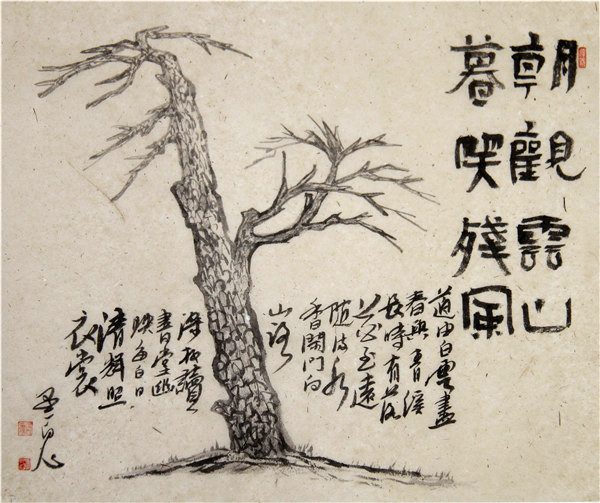 朝觀雲山
暮咲殘風
道由白雲盡
春與青溪
長時有落
花至遠
隨流水
香閑門向
山路
深柳讀
書堂幽
映每白日
清輝照
衣裳